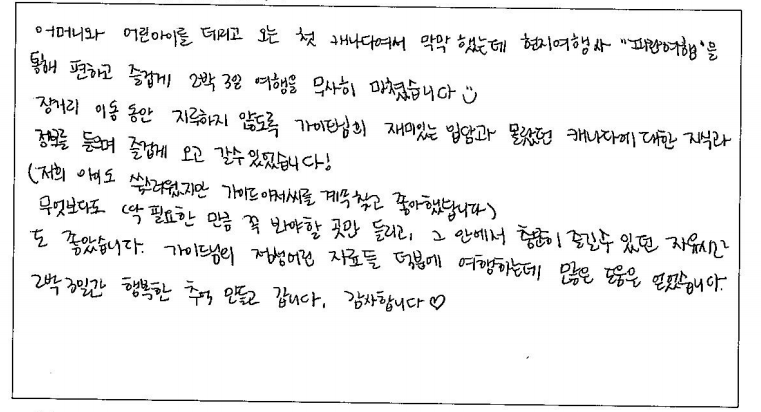 어머니와 어린아이를 데리고 오는 첫 캐나다여서 막막했는데 현지여행사 "파란여행"을
통해 편하고 즐겁게 2박3일 여행을 무사히 마쳤습니다
장거리 이동 동안 지루하지 않도록 가이드님의 재미있는 입담과 몰랐던 캐나다에 대한 지식과
정보를 들으며 즐겁게 오고 갈수 있었습니다!
(저희 아이도 쑥스러웠지만 가이드아저씨를 계속 찾고 좋아했답니다)
무엇보다도 (딱 필요한 만큼 꼭 봐야할 곳만 들리고, 그 안에서 즐길수 있던 자유시간
도 좋았습니다. 가이드님의 정성어린 자료들 덕분에 여행하는데 많은 도움을 얻었습니다.
2박3일간 행복한 추억 만들고 갑니다. 감사합니다♡